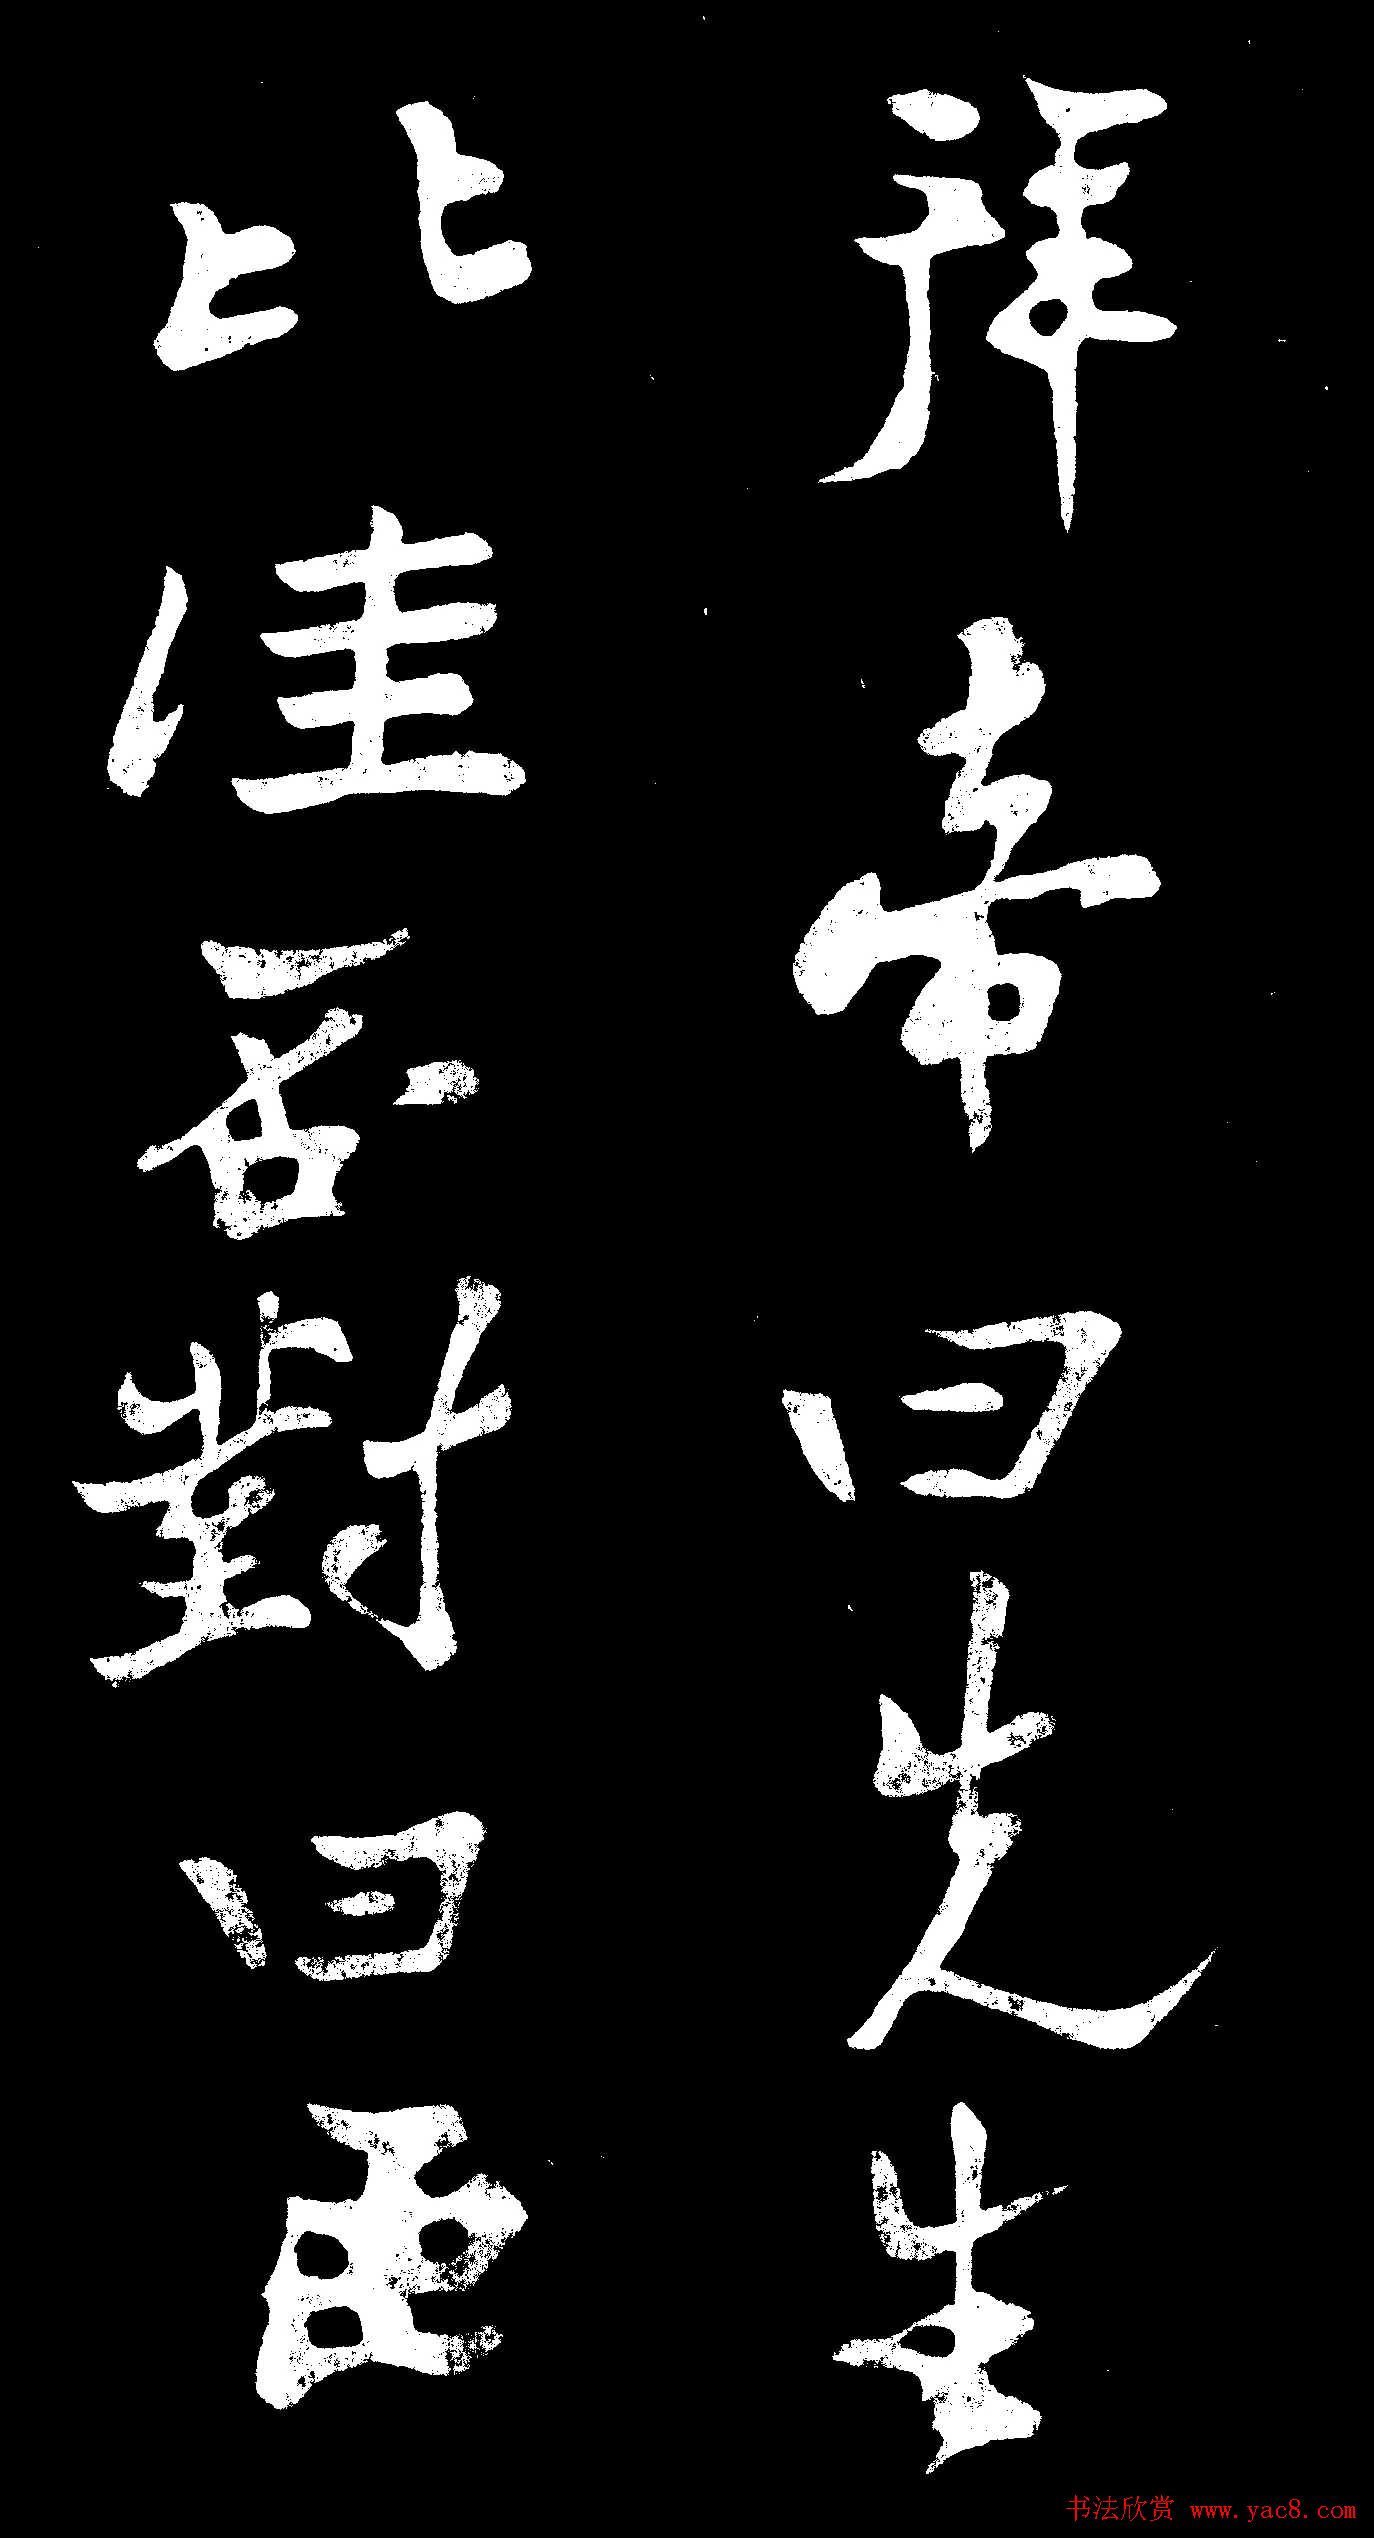 拜帝曰先生
比佳否對曰臣
书法欣赏 www.yac8.com